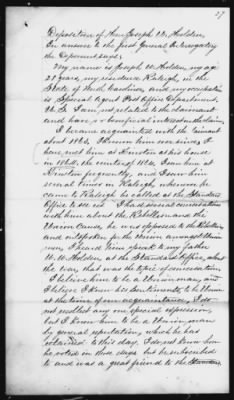 27
Deposition of Hon Joseph W. Holden.
In answer to the first general Interrogatory
the Deponent says:
My name is Joseph W. Holden, my age
28 years, my residence Raleigh, in the
State of North Carolina, and my occupation
is, Special Agent Post Office Department.
I am not related to the claimant
and have no beneficial interest in the claim.
I became acquainted with the Claimant
about 1863. I knew him ever since, I
have met him at Newton at his house
in 1864. the winter of 1864 I saw him at
Newton frequently, and I saw him
several times in Raleigh, whenever he
came to Raleigh he called at the Standard
Office to see us. I had several conversations
with him about the Rebellion and the
Union Cause, he was opposed to the Rebellion
and outspoken for the Union among Union
men, I heard him speak to my father
W. W. Holden, at the Standard Office, about
the war, that was the topic of conversation.
I believe him to be a Union man, and
I believe I knew his sentiments to be Union
at the time of our acquaintance, I do
not recollect any one special expression,
but I know him to be a Union man
by general reputation, which he has
retained to this day. I do not know how
he voted in those days but he subscribed
to and was a great friend to the Standard